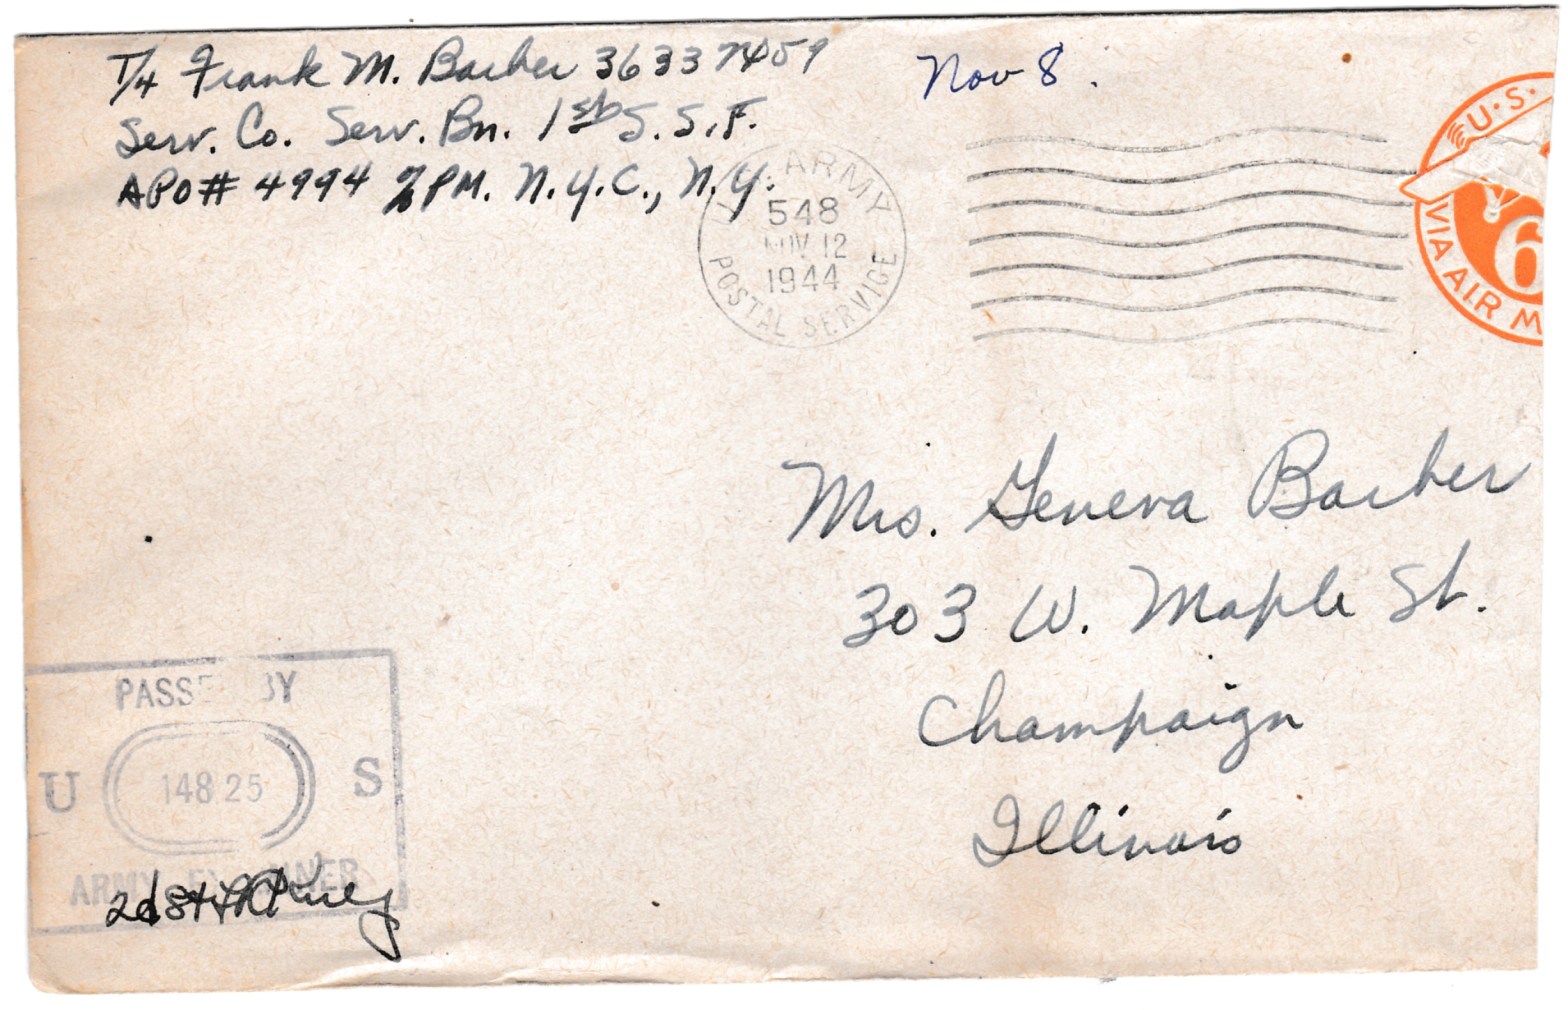 T/4 Frank M. Barber 36337459
Serv. Co. Serv. Bn. 1st S.S.F.
APO# 4994 % PM. N.Y.C., N.Y.
Nov 8.
U.S. ARMY
548
NOV 12
1944
POSTAL SERVICE
U.S.
6
VIA AIR M
Mrs. Geneva Barber
303 W. Maple St.
Champaign
Illinois
PASSED BY
U 14825 S
ARMY EXAMINER
2d Lt